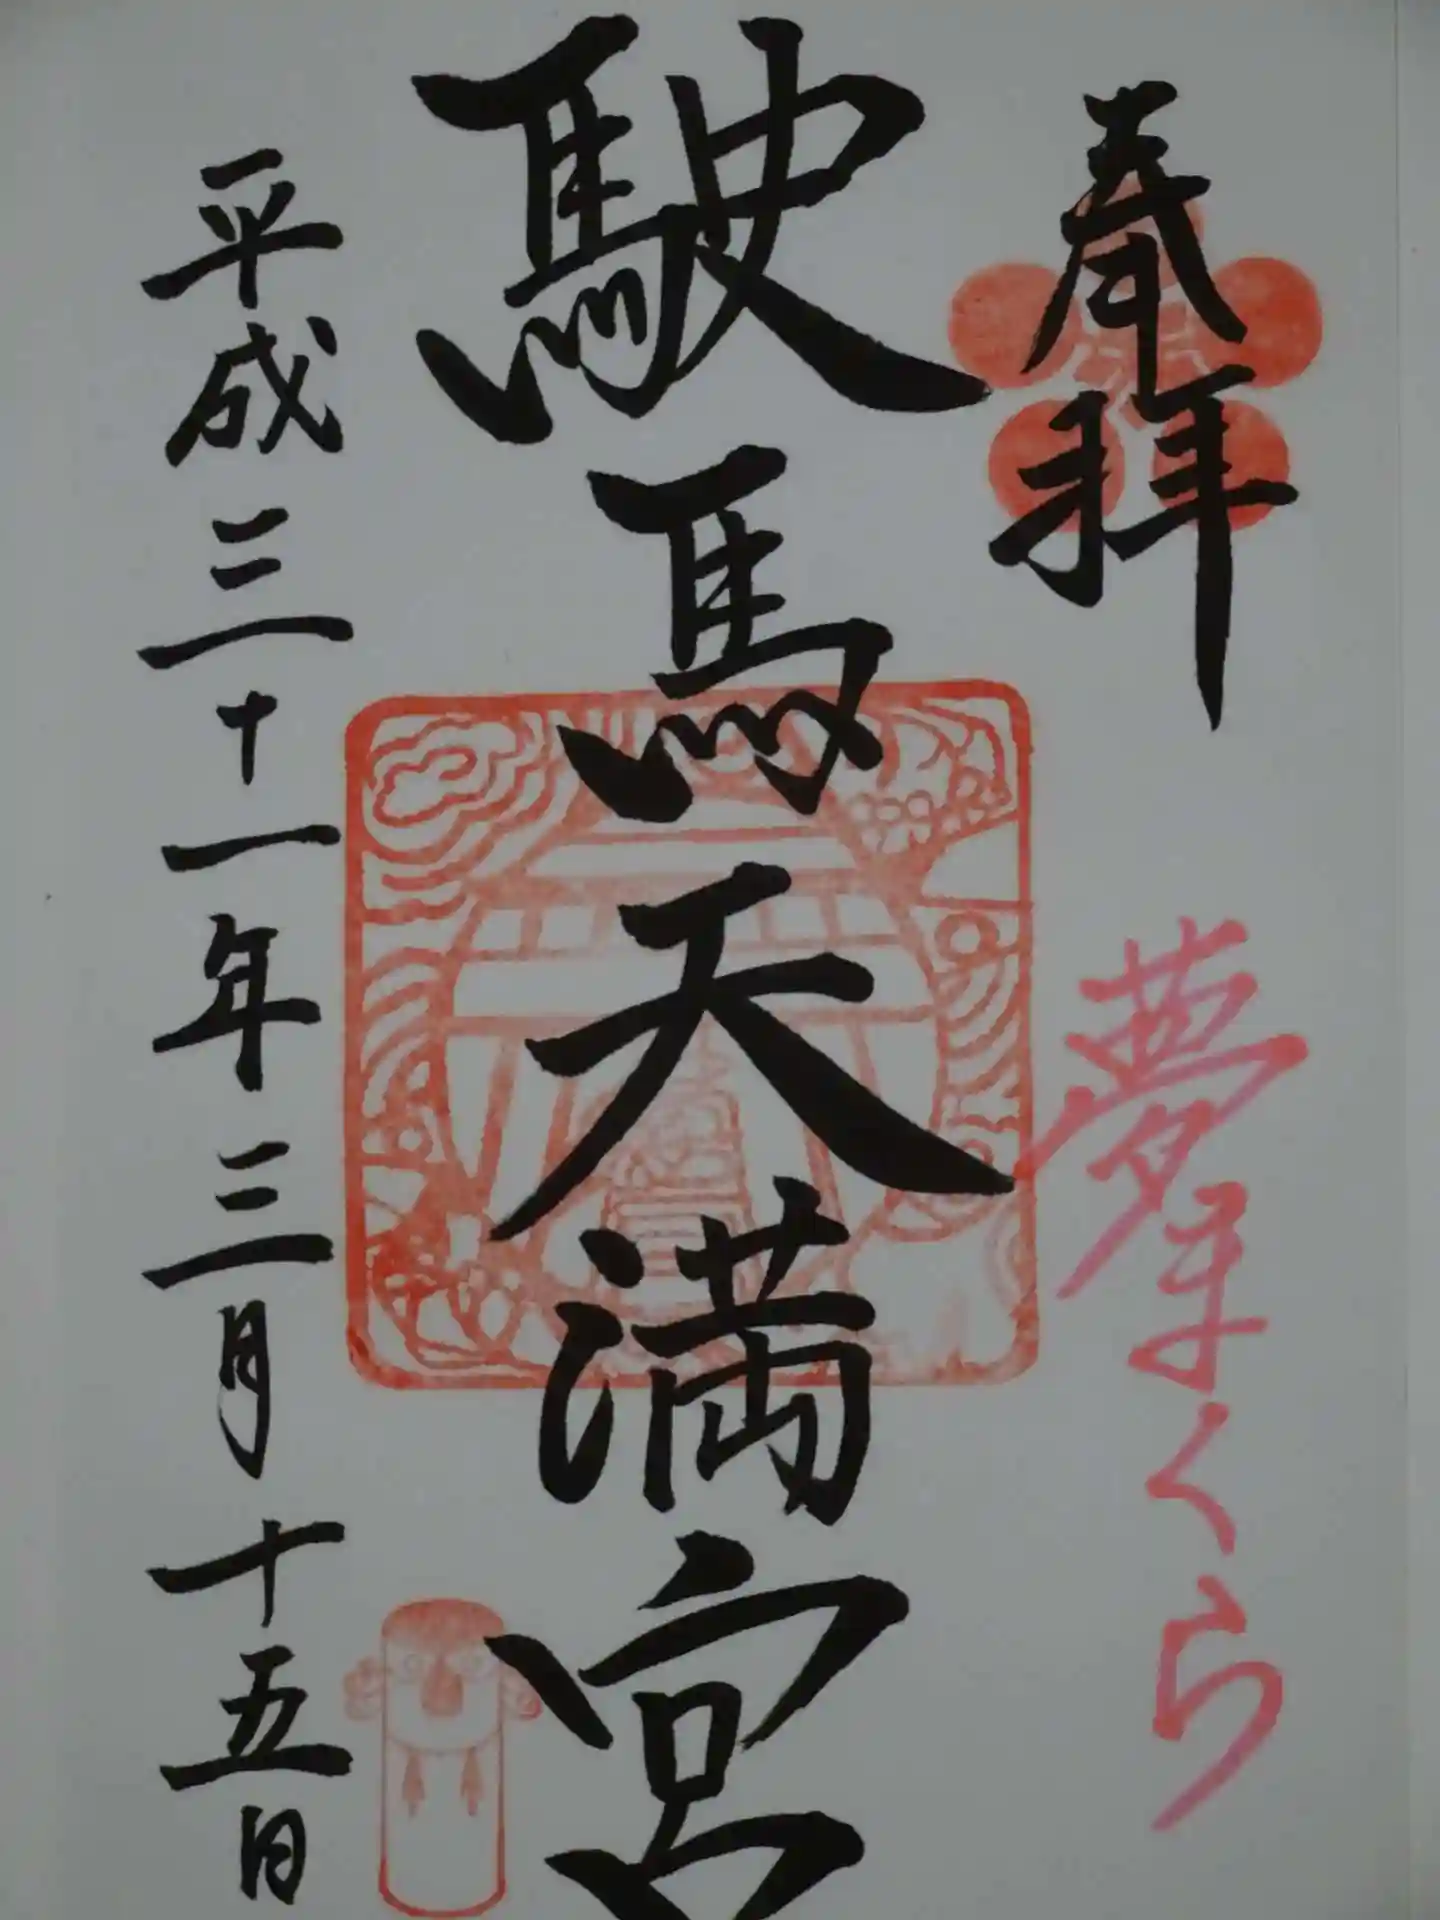 奉拝
夢さくら
駛馬天満宮
平成三十一年三月十五日